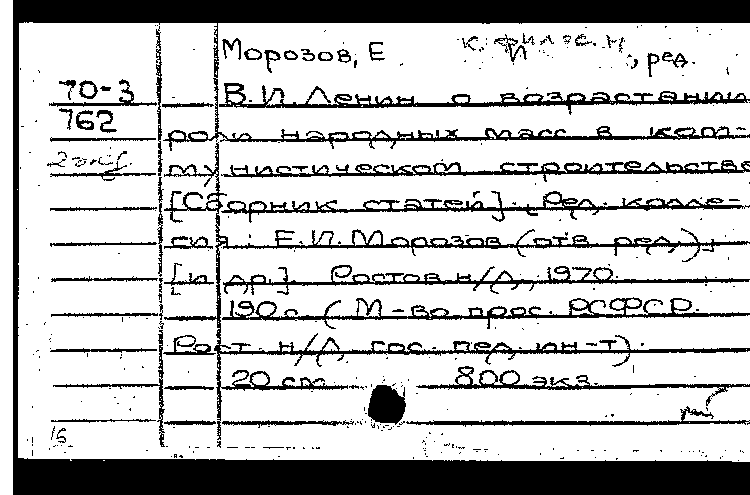 Морозов, Е И к. филос. н., ред.
70-3 В.И. Ленин о возрастании
762 роли народных масс в ком-
2 экз мунистическом строительстве
[Сборник статей]. [Ред. колле-
гия: Е.И. Морозов (отв. ред.)
[и др.]. Ростов н/Д, 1970.
190 с. (М-во прос. РСФСР.
Рост. н/Д гос. пед. ин-т).
20 см 800 экз.
16